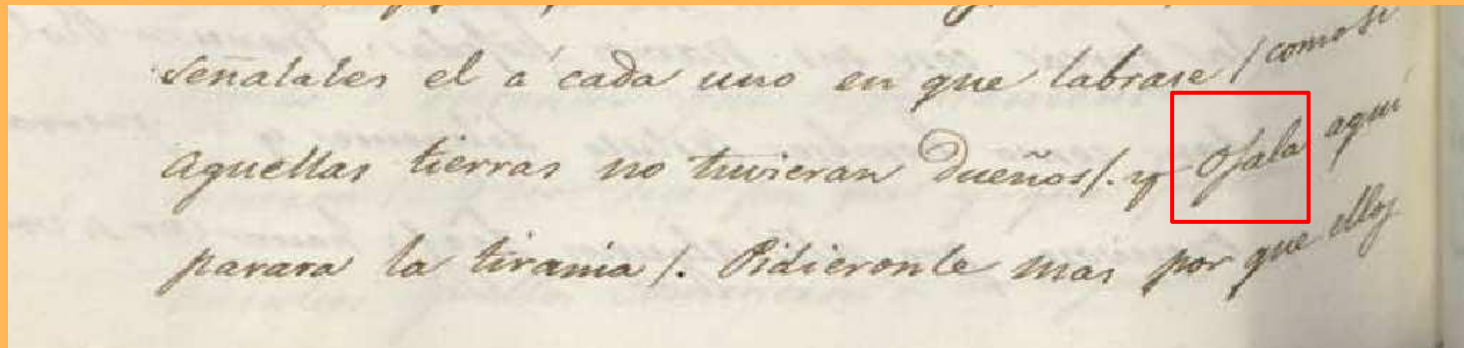 señalales el a' cada uno en que labrase / como si
aquellas tierras no tuvieran dueños/. y Ojala aqui
parara la tirania/. Pidieronle mas por que ellos